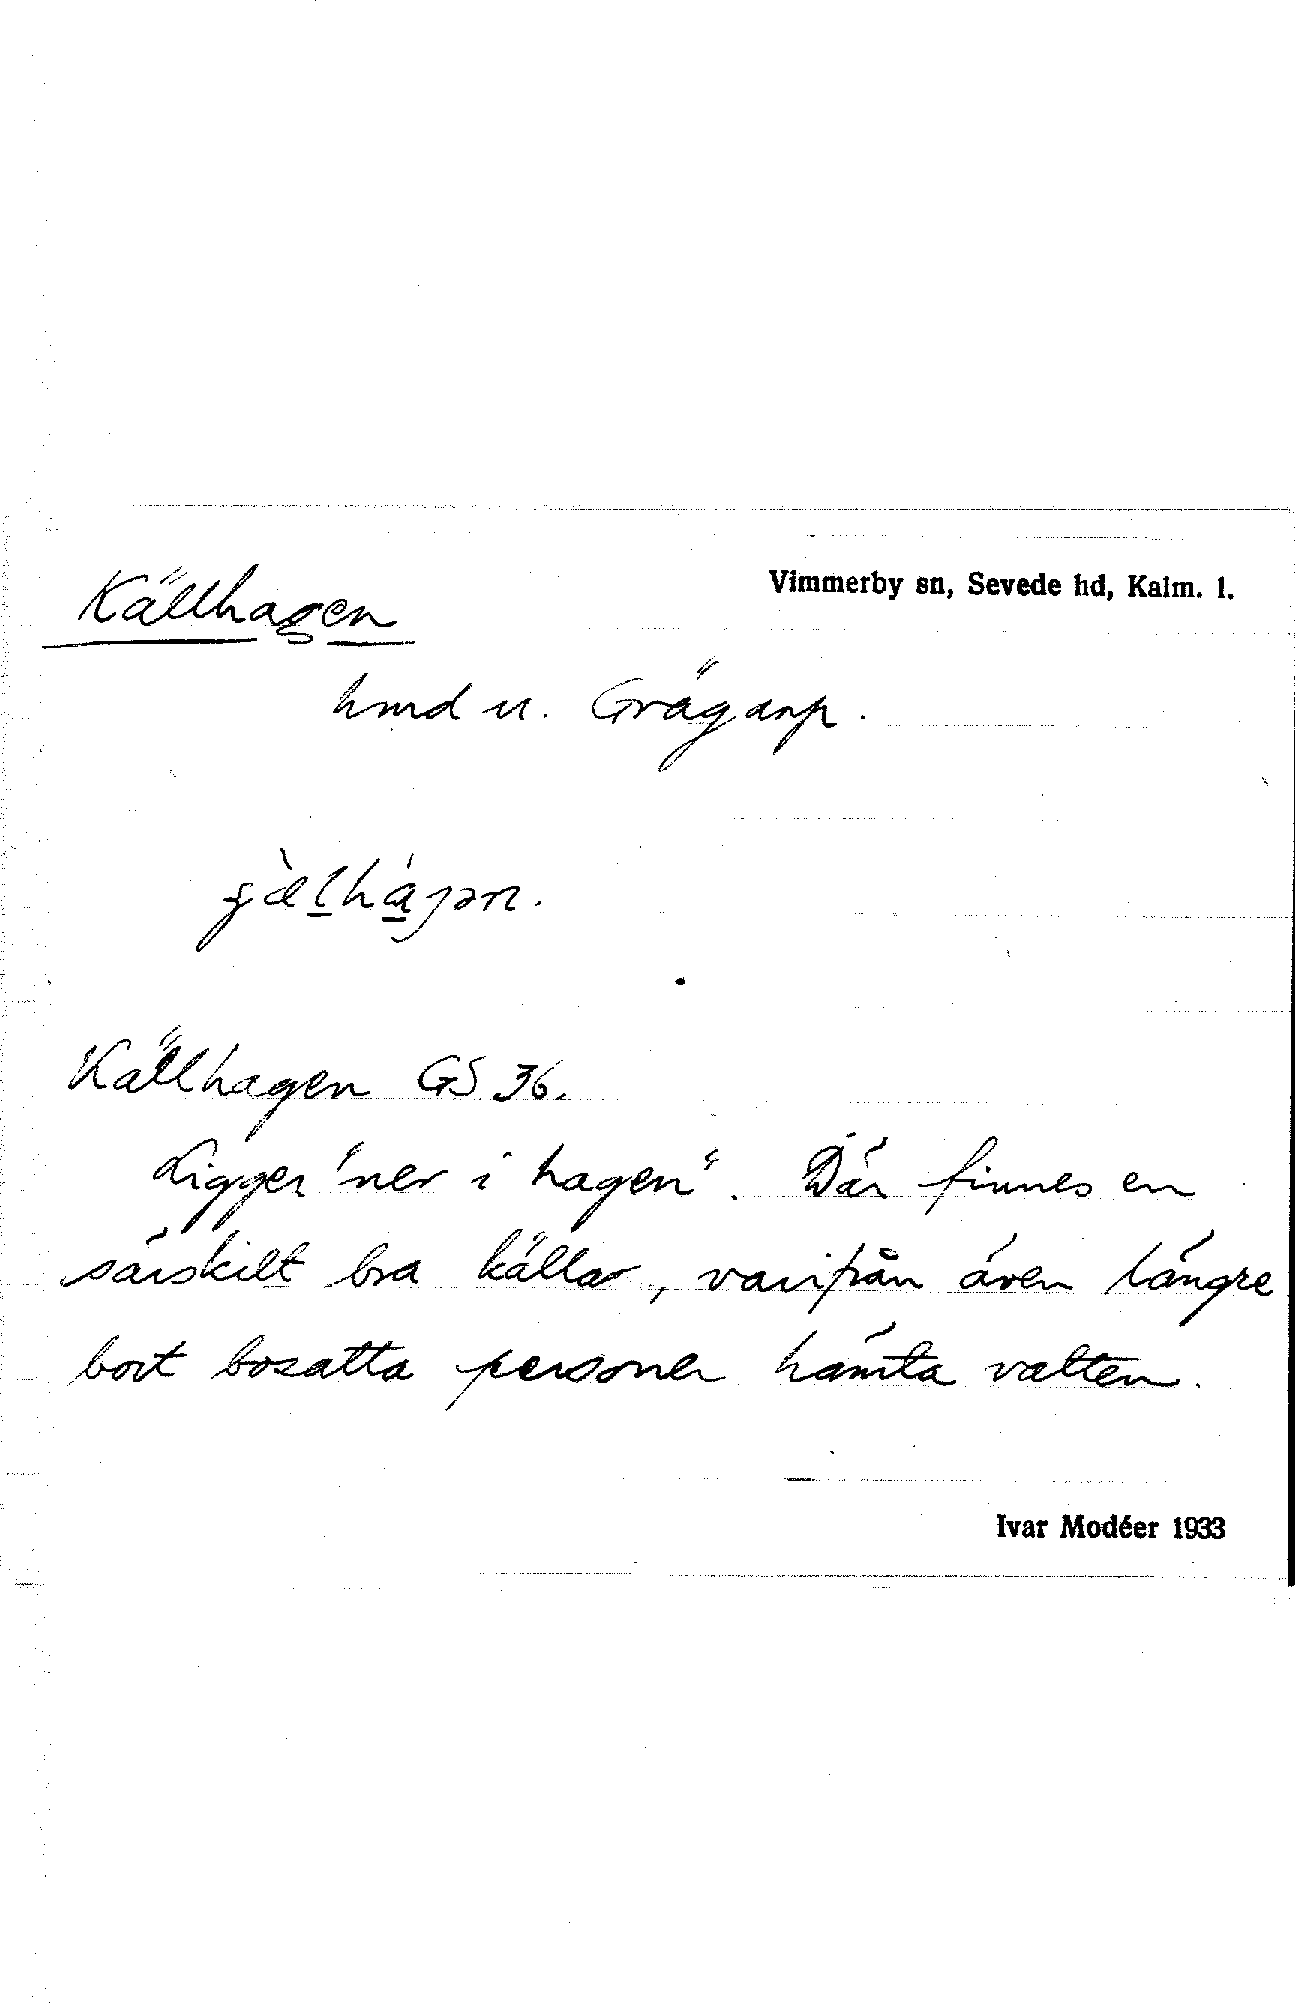 Källhagen
Vimmerby sn, Sevede hd, Kalm. l.
hmd u. Grägarp.
Källhagen GS 36.
Ligger "ner i hagen". Där finnes en
särskilt bra källa, varifrån även längre
bort bosatta personer hämta vatten.
Ivar Modéer 1933